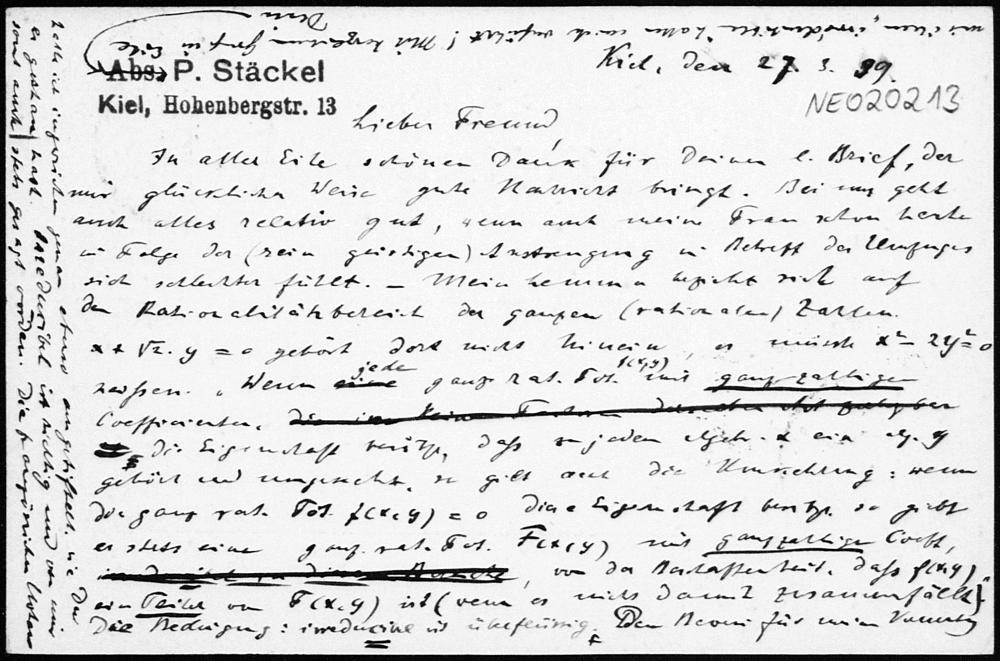 Abs. P. Stäckel
Kiel, Hohenbergstr. 13
Kiel, den 27. 3. 99.
NE020213
Lieber Freund,
In aller Eile schönen Dank für Deinen l. Brief, der
mir glücklicher Weise gute Nachricht bringt. Bei uns geht
auch alles relativ gut, wenn auch meine Frau schon heute
in Folge der (rein geistigen) Anstrengung in Betreff des Umzuges
sich schlechter fühlt. – Mein Lemma bezieht sich auf
den Rationalitätsbereich der ganzen (rationalen) Zahlen.
x + √2. y = 0 gehört dort nicht hinein, es müsste x² – 2y² = 0
heissen. „Wenn eine jede ganz. rat. Fct. f(x,y) mit ganzzahligen
Coefficienten,
die Eigenschaft besitzt, dass zu jedem algebr. x ein alg. y
gehört und umgekehrt, so gilt auch die Umkehrung: wenn
die ganz rat. Fct. f(x,y) = 0 diese Eigenschaft besitzt, so giebt
es stets eine ganz. rat. Fct. F(x,y) mit ganzzahligen Coeff.,
von der Beschaffenheit, dass f(x,y)
ein Teiler von F(x,y) ist (wenn es nicht damit zusammenfällt)“
Die Bedingung: irreducibel ist überflüssig. Den Beweis für mein
hatte ich inzwischen genau ebenso angezettelt, wie Du
es gethan hast. Irreducibel ist richtig und von mir
sonst auch stets gesagt worden. Die französischen
mit ihrem „irréductible“ haben mich verführt! Mit herzlichem Gruß in Eile
Dein